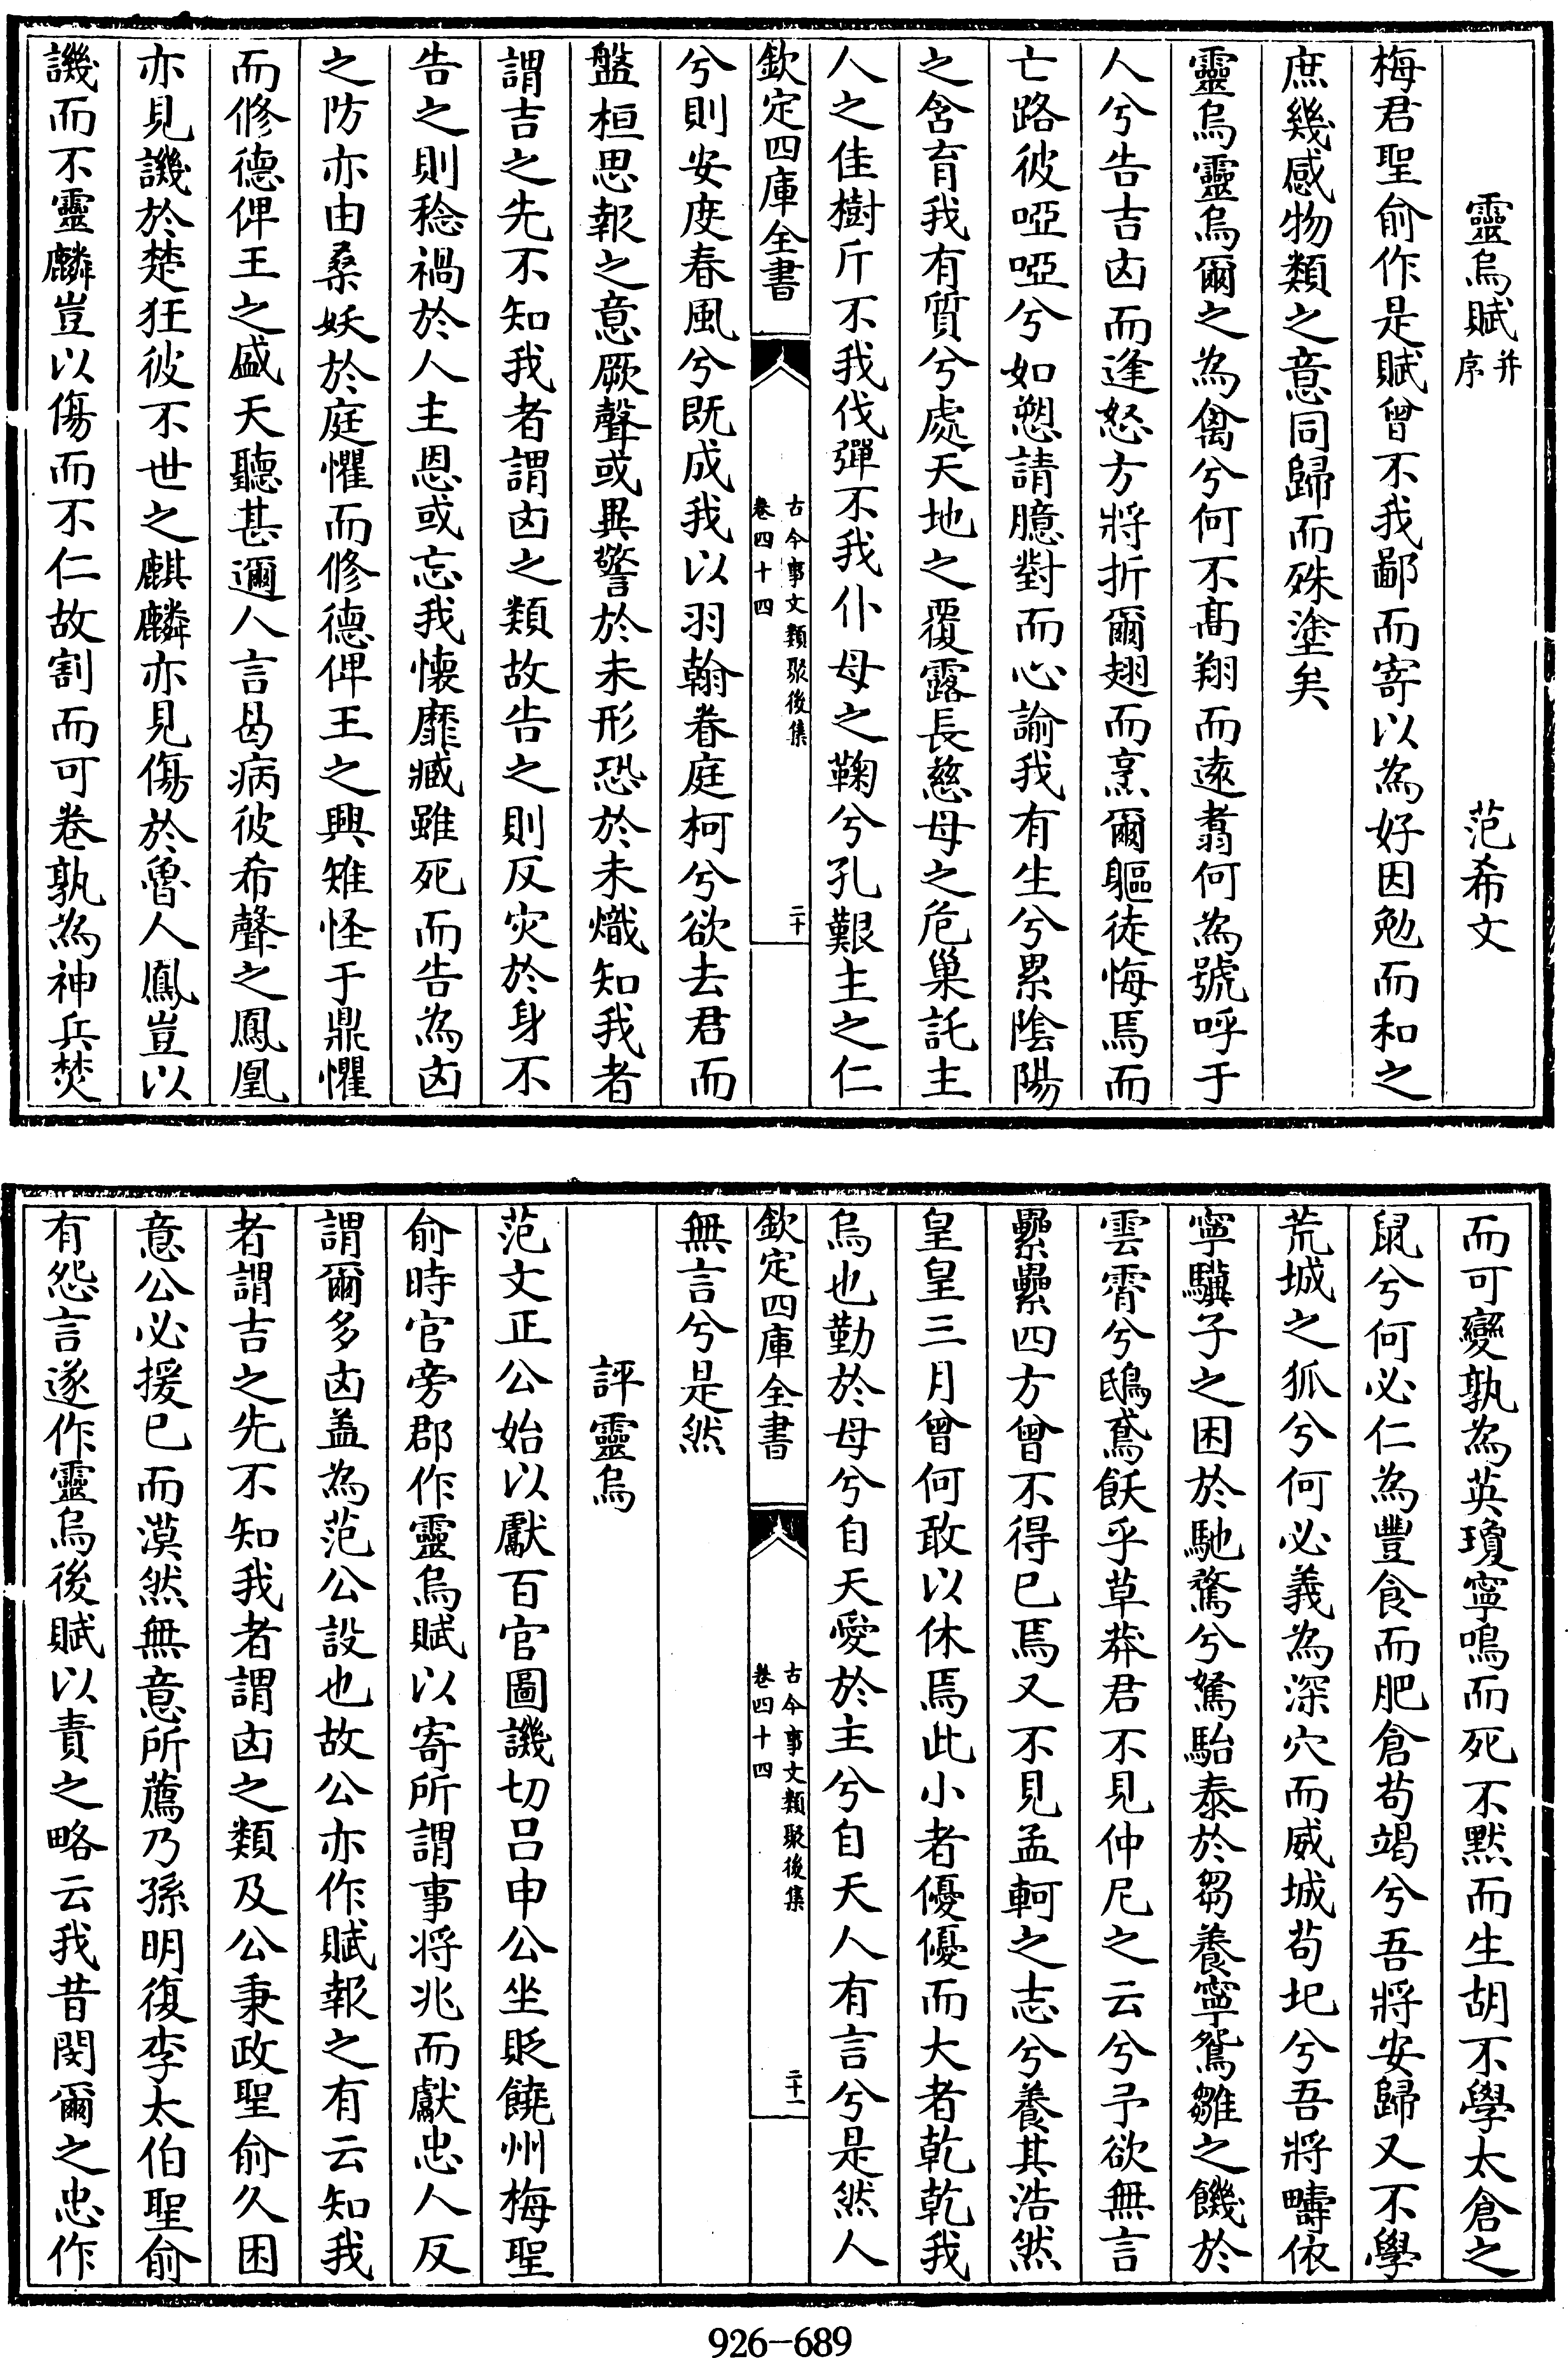 靈烏賦并序 范希文
梅君聖俞作是賦曾不我鄙而寄以為好因勉而和之
庶幾感物類之意同歸而殊塗矣
靈烏靈烏爾之為禽兮何不髙翔而逺翥何為號呼于
人兮告吉凶而逢怒方將折爾翅而烹爾軀徒悔焉而
亡路彼啞啞兮如愬請臆對而心諭我有生兮累隂陽
之含育我有質兮處天地之覆露長慈母之危巢託主
人之佳樹斤不我伐彈不我仆母之鞠兮孔艱主之仁
欽定四庫全書
古今事文類聚後集
卷四十四
二十
兮則安度春風兮既成我以羽翰眷庭柯兮欲去君而
盤桓思報之意厥聲或異警於未形恐於未熾知我者
謂吉之先不知我者謂凶之類故告之則反灾於身不
告之則稔禍於人主恩或忘我懐靡臧雖死而告為凶
之防亦由桑妖於庭懼而修德俾王之興雉怪于鼎懼
而修德俾王之盛天聽甚邇人言曷病彼希聲之鳳凰
亦見譏於楚狂彼不世之麒麟亦見傷於魯人鳳豈以
譏而不靈麟豈以傷而不仁故割而可卷孰為神兵焚
而可變孰為英瓊寧鳴而死不黙而生胡不學太倉之
鼠兮何必仁為豐食而肥倉茍竭兮吾將安歸又不學
荒城之狐兮何必義為深穴而威城茍圮兮吾將疇依
寧驥子之困於馳騖兮駑駘泰於芻養寧鵷雛之饑於
雲霄兮鴟鳶飫乎草莽君不見仲尼之云兮予欲無言
纍纍四方曾不得已焉又不見孟軻之志兮養其浩然
皇皇三月曾何敢以休焉此小者優優而大者乾乾我
烏也勤於母兮自天愛於主兮自天人有言兮是然人
欽定四庫全書
古今事文類聚後集
卷四十四
二十一
無言兮是然
評靈烏
范文正公始以獻百官圖譏切吕申公坐貶饒州梅聖
俞時官旁郡作靈烏賦以寄所謂事将兆而獻忠人反
謂爾多凶盖為范公設也故公亦作賦報之有云知我
者謂吉之先不知我者謂凶之類及公秉政聖俞久困
意公必援已而漠然無意所薦乃孫明復李太伯聖俞
有怨言遂作靈烏後賦以責之略云我昔閔爾之忠作
926-689